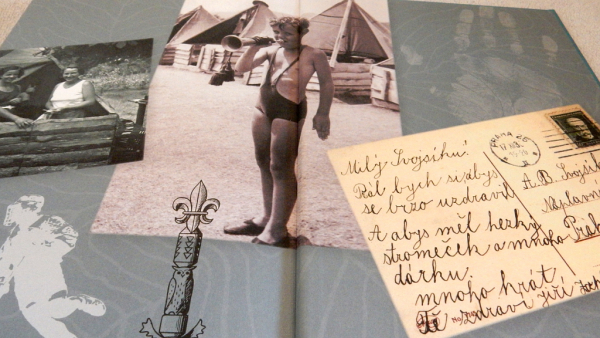 Milý Svojsíku!
Rál bych si abys
se brzo uzdravil
A abys měl herký
stromeček a mnoho
dárku.
mnoho hrát
Tě zdraví Jiří
PRAHA
A. B. Svojsík